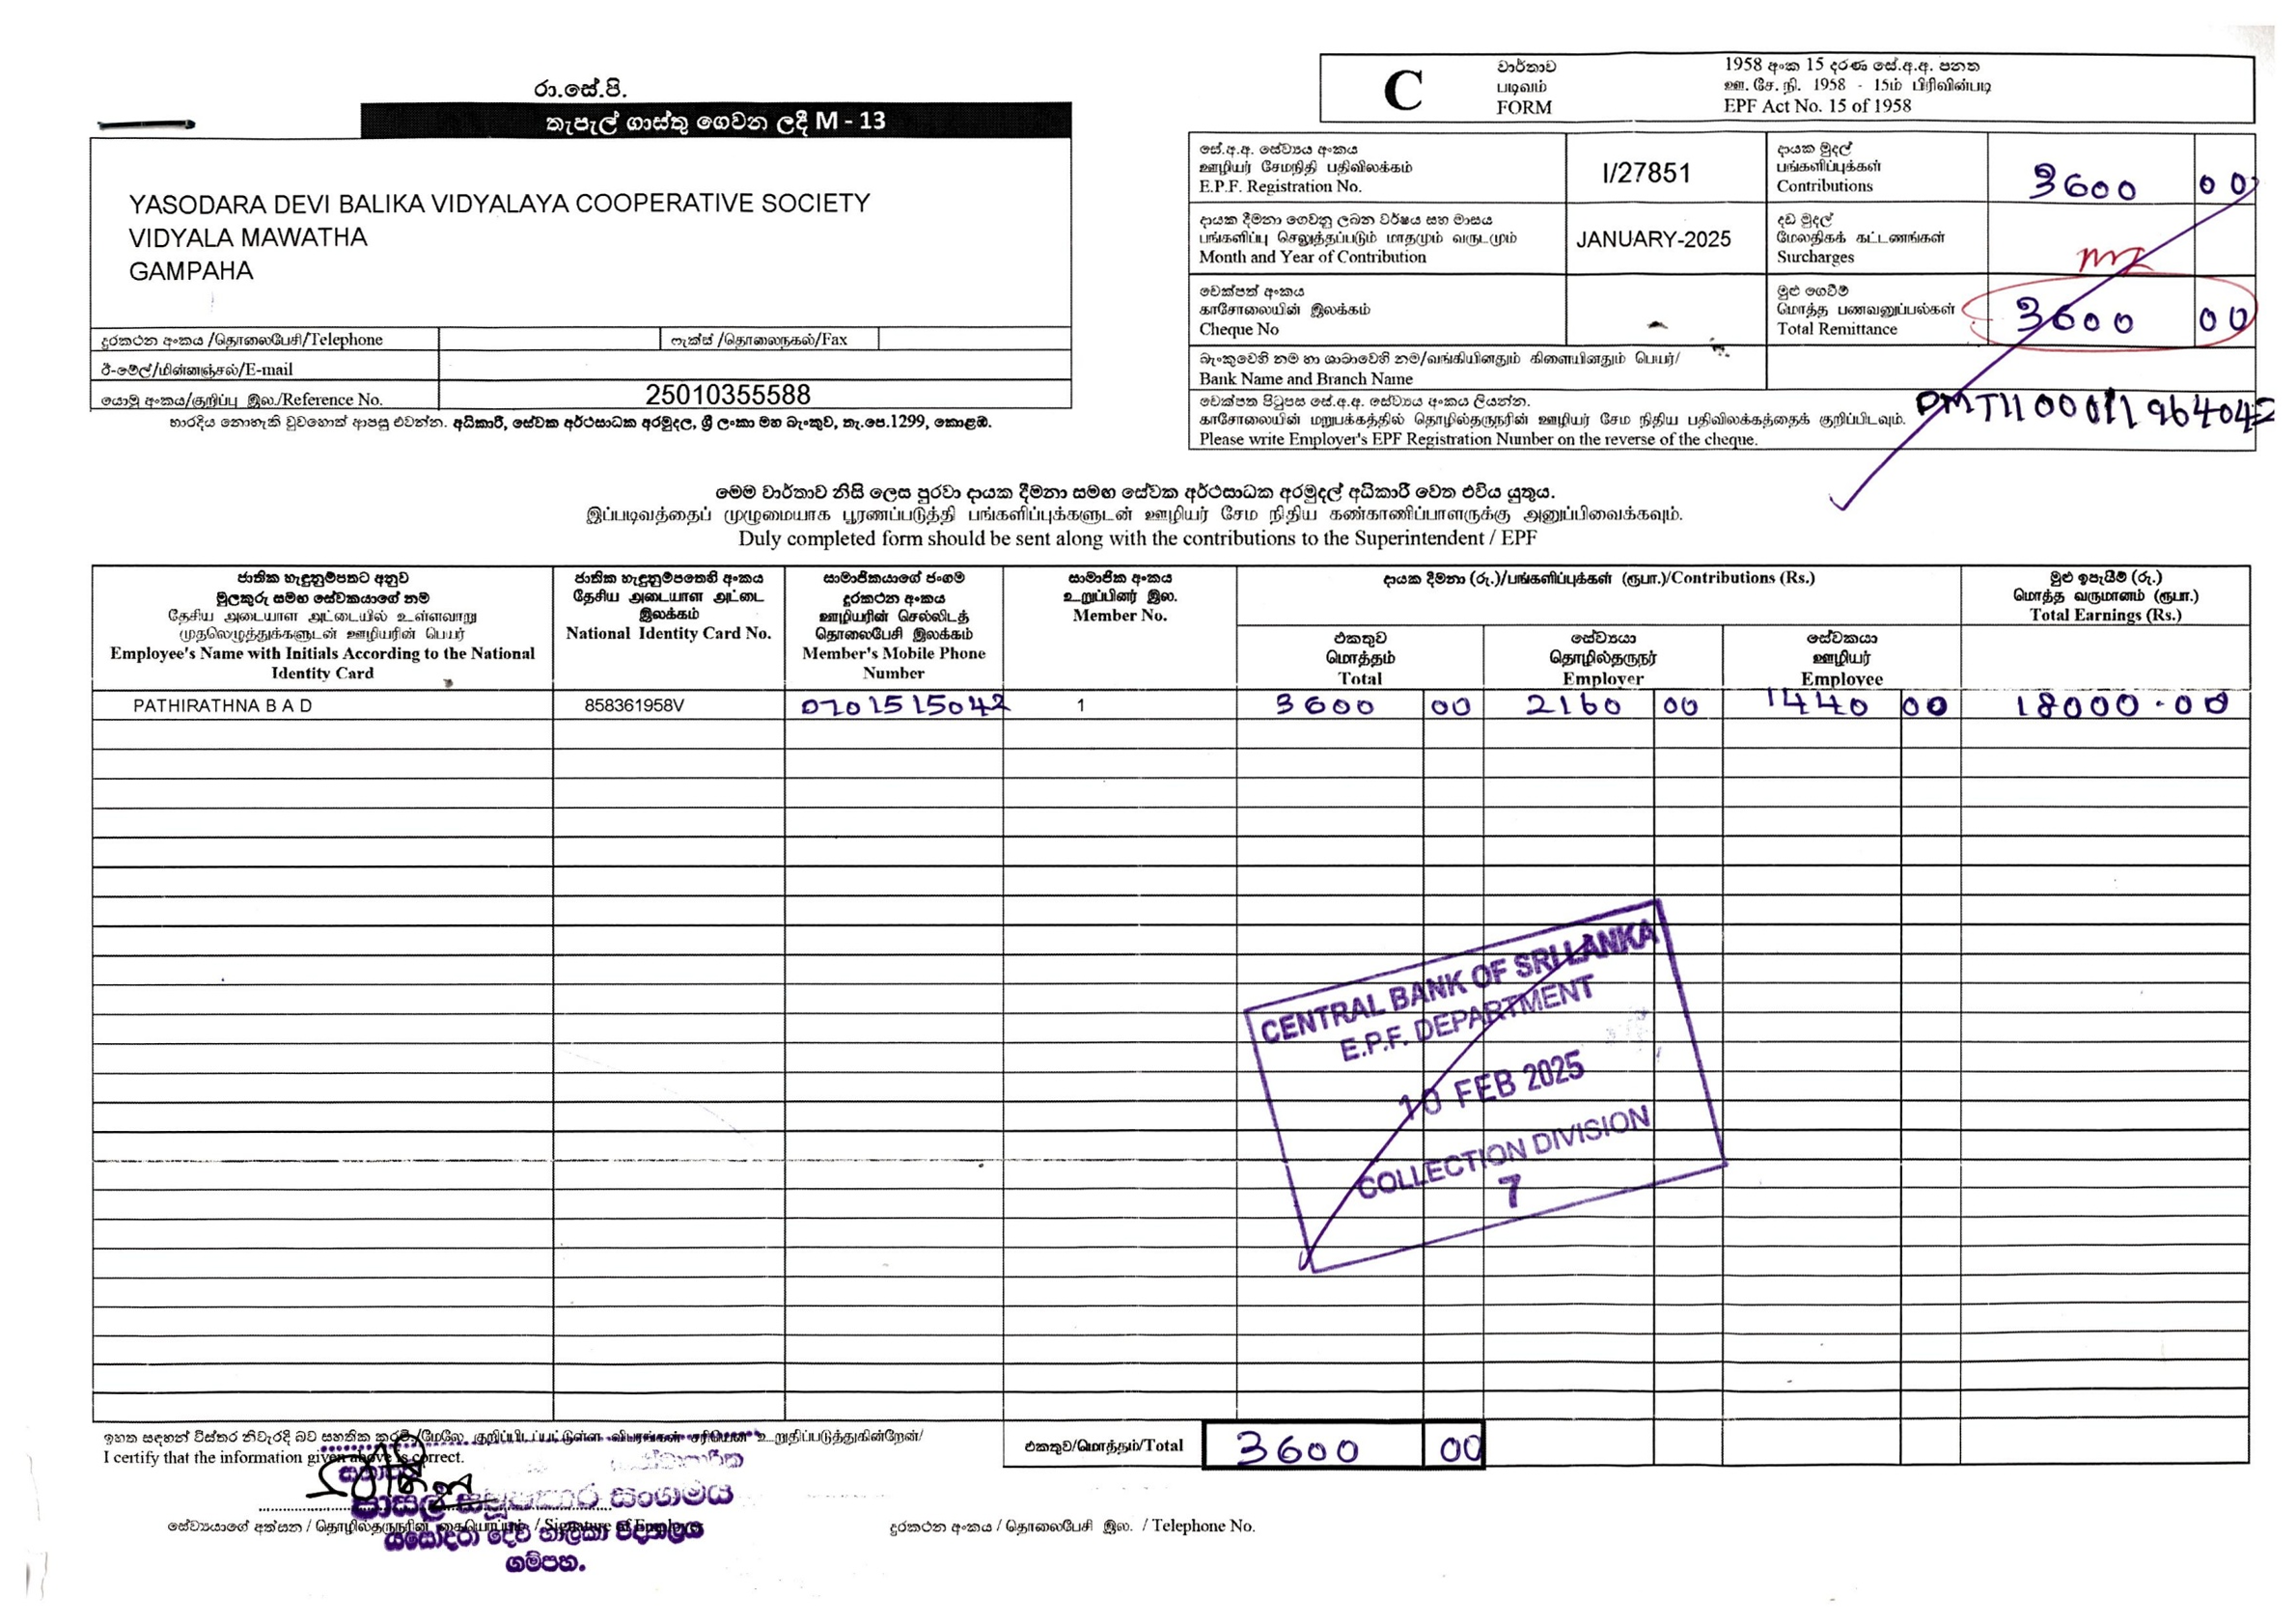 රා.සේ.පි.
තැපැල් ගාස්තු ගෙවන ලදී M - 13
YASODARA DEVI BALIKA VIDYALAYA COOPERATIVE SOCIETY
VIDYALA MAWATHA
GAMPAHA
දුරකථන අංකය /தொலைபேசி/Telephone
ෆැක්ස් /தொலைநகல்/Fax
ඊ-මේල්/மின்னஞ்சல்/E-mail
යොමු අංකය/குறிப்பு இல./Reference No. 25010355588
භාරදිය නොහැකි වුවහොත් ආපසු එවන්න. අධිකාරී, සේවක අර්ථසාධක අරමුදල, ශ්‍රී ලංකා මහ බැංකුව, තැ.පෙ.1299, කොළඹ.
C
වාර්තාව
படிவம்
FORM
1958 අංක 15 දරණ සේ.අ.අ. පනත
ஊ. சே. நி. 1958 - 15ம் பிரிவின்படி
EPF Act No. 15 of 1958
සේ.අ.අ. සේව්‍යය අංකය
ஊழியர் சேமநிதி பதிவிலக்கம்
E.P.F. Registration No.
I/27851
දායක මුදල්
பங்களிப்புக்கள்
Contributions
3600 00
දායක දීමනා ගෙවනු ලබන වර්ෂය සහ මාසය
பங்களிப்பு செலுத்தப்படும் மாதமும் வருடமும்
Month and Year of Contribution
JANUARY-2025
දඩ මුදල්
மேலதிகக் கட்டணங்கள்
Surcharges
චෙක්පත් අංකය
காசோலையின் இலக்கம்
Cheque No
මුළු ගෙවීම්
மொத்த பணவனுப்பல்கள்
Total Remittance
3600 00
බැංකුවෙහි නම හා ශාඛාවෙහි නම/வங்கியினதும் கிளையினதும் பெயர்/
Bank Name and Branch Name
චෙක්පත පිටුපස සේ.අ.අ. සේව්‍යය අංකය ලියන්න.
காசோலையின் மறுபக்கத்தில் தொழில்தருநரின் ஊழியர் சேம நிதிய பதிவிலக்கத்தைக் குறிப்பிடவும்.
Please write Employer's EPF Registration Number on the reverse of the cheque.
මෙම වාර්තාව නිසි ලෙස පුරවා දායක දීමනා සමඟ සේවක අර්ථසාධක අරමුදල් අධිකාරී වෙත එවිය යුතුය.
இப்படிவத்தைப் முழுமையாக பூரணப்படுத்தி பங்களிப்புக்களுடன் ஊழியர் சேம நிதிய கண்காணிப்பாளருக்கு அனுப்பிவைக்கவும்.
Duly completed form should be sent along with the contributions to the Superintendent / EPF
ජාතික හැඳුනුම්පතට අනුව
මුලකුරු සමඟ සේවකයාගේ නම
தேசிய அடையாள அட்டையில் உள்ளவாறு
முதலெழுத்துக்களுடன் ஊழியரின் பெயர்
Employee's Name with Initials According to the National
Identity Card
ජාතික හැඳුනුම්පතෙහි අංකය
தேசிய அடையாள அட்டை
இலக்கம்
National Identity Card No.
සාමාජිකයාගේ ජංගම
දුරකථන අංකය
ஊழியரின் செல்லிடத்
தொலைபேசி இலக்கம்
Member's Mobile Phone
Number
සාමාජික අංකය
உறுப்பினர் இல.
Member No.
දායක දීමනා (රු.)/பங்களிப்புக்கள் (ரூபா.)/Contributions (Rs.)
එකතුව
மொத்தம்
Total
සේව්‍යයා
தொழில்தருநர்
Employer
සේවකයා
ஊழியர்
Employee
මුළු ඉපැයීම් (රු.)
மொத்த வருமானம் (ரூபா.)
Total Earnings (Rs.)
PATHIRATHNA B A D 858361958V 0701515042 1 3600 00 2160 00 1440 00 18000.00
CENTRAL BANK OF SRI LANKA
E.P.F. DEPARTMENT
10 FEB 2025
COLLECTION DIVISION
7
එකතුව/மொத்தம்/Total 3600 00
ඉහත සඳහන් විස්තර නිවැරදි බව සහතික කරමි/மேலே குறிப்பிடப்பட்டுள்ள விபரங்கள் சரியென உறுதிப்படுத்துகின்றேன்/
I certify that the information given above is correct.
පාසල් සමුපකාර සංගමය
යසෝදරා දේවි බාලිකා විද්‍යාලය
ගම්පහ.
සේව්‍යයාගේ අත්සන / தொழில்தருநரின் கையொப்பம் / Signature of Employer
දුරකථන අංකය / தொலைபேசி இல. / Telephone No.